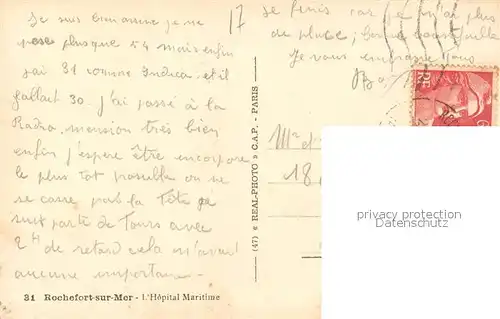 17
Je suis bien arrivé je ne
pèse plus que 54 mais enfin
j'ai 31 comme Indice et il
fallait 30. J'ai passé à la
Radio, mension très bien
enfin j'espère être incorpore
le plus tot possible on ne
se casse pas la Tête je
suis parti de Tours avec
2H de retard cela n'avait
aucune importance -
31 Rochefort-sur-Mer - L'Hôpital Maritime
(47) « REAL-PHOTO » C.A.P. - PARIS
Je finis car je n'ai plus
de place,
Je vous embrasse Tous
Mr et
18
privacy protection
Datenschutz